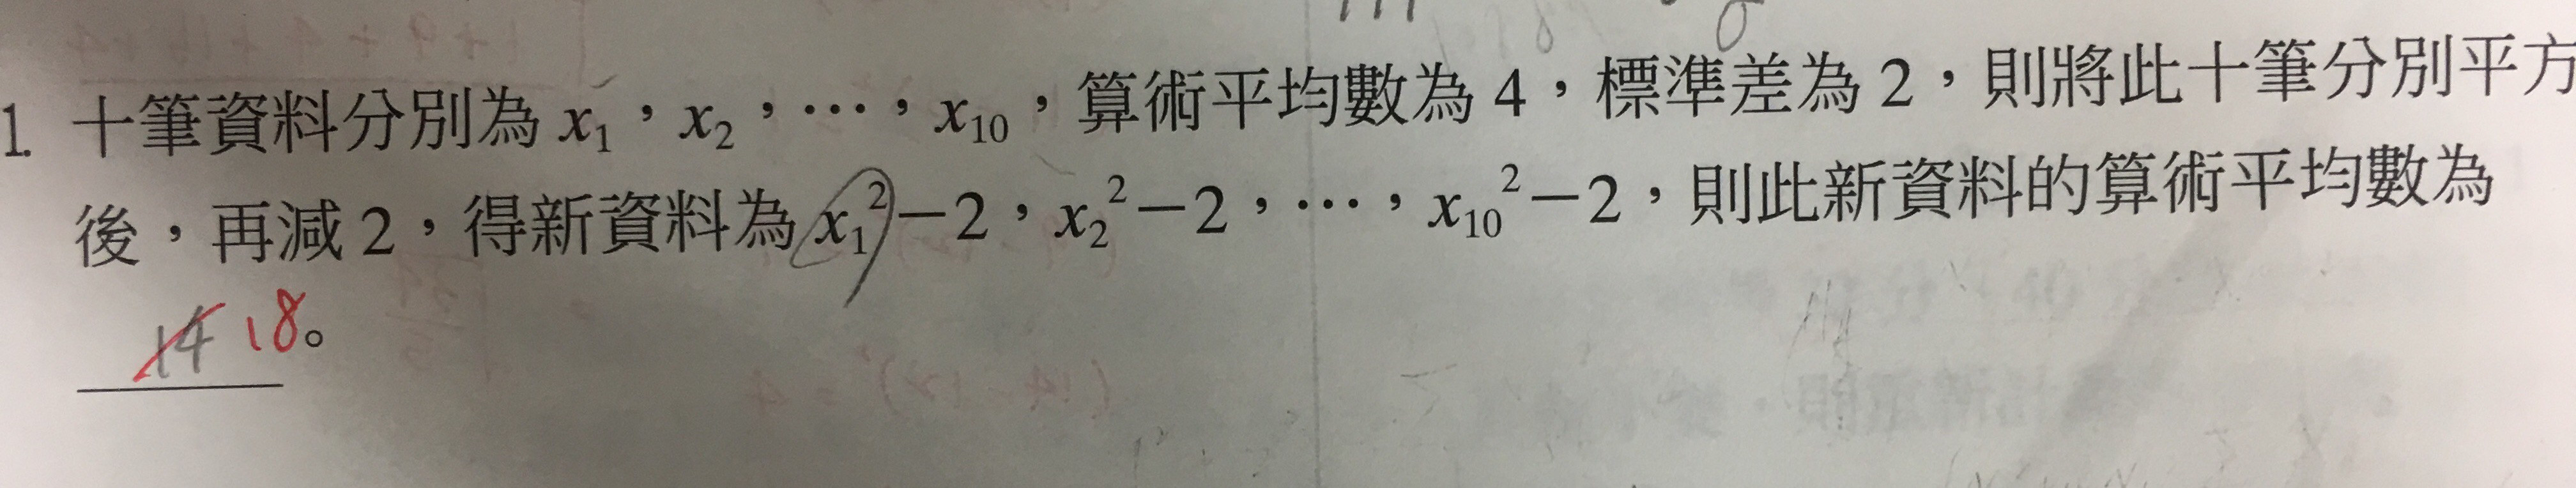 1. 十筆資料分別為 x₁，x₂，⋯，x₁₀，算術平均數為 4，標準差為 2，則將此十筆分別平方
後，再減 2，得新資料為 x₁²－2，x₂²－2，⋯，x₁₀²－2，則此新資料的算術平均數為
14 18。